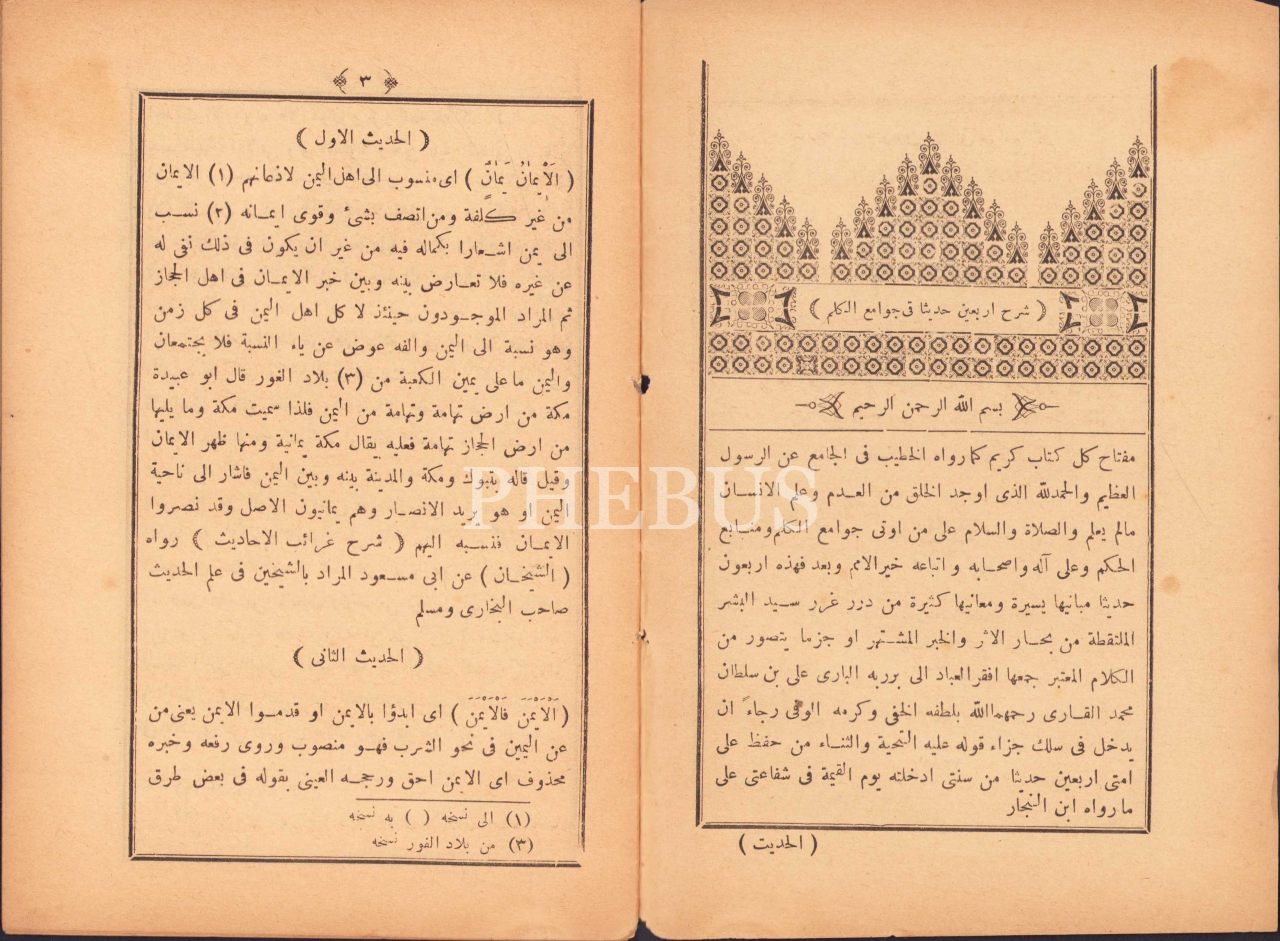 ( شرح اربعين حديثا فى جوامع الكلم )
بسم الله الرحمن الرحيم
مفتاح كل كتاب كريم كما رواه الخطيب فى الجامع عن الرسول
العظيم والحمدلله الذى اوجد الخلق من العدم وعلم الانسان
مالم يعلم والصلاة والسلام على من اوتى جوامع الكلم ومنابع
الحكم وعلى آله واصحابه و اتباعه خيرالامم وبعد فهذه اربعون
حديثا مبانيها يسيرة ومعانيها كثيرة من درر غرر سيد البشر
الملتقطة من بحار الاثر والخبر المشتهر او جزما يتصور من
الكلام المعتبر جمعها افقر العباد الى بر ربه البارى على بن سلطان
محمد القارى رحمهما الله بلطفه الخفى وكرمه الوفى رجاء ان
يدخل فى سلك جزاء قوله عليه التحية والثناء من حفظ على
امتى اربعين حديثا من سنتى ادخلته يوم القيمة فى شفاعتى على
مارواه ابن النجار
( الحديث )
٣
( الحديث الاول )
( اَلْاِيمَانُ يَمَانٌ ) اى منسوب الى اهل اليمن لاذعانهم (١) الايمان
من غير كلفة ومن اتصف بشئ وقوى ايمانه (٢) نسب
الى يمن اشعارا بكماله فيه من غير ان يكون فى ذلك نفى له
عن غيره فلا تعارض بينه وبين خبر الايمان فى اهل الحجاز
ثم المراد الموجودون حينئذ لا كل اهل اليمن فى كل زمن
وهو نسبة الى اليمن والفه عوض عن ياء النسبة فلا يجتمعان
واليمن ما على يمين الكعبة من (٣) بلاد الغور قال ابو عبيدة
مكة من ارض تهامة وتهامة من اليمن فلذا سميت مكة وما يليها
من ارض الحجاز تهامة فعليه يقال مكة يمانية ومنها ظهر الايمان
وقيل قاله بتبوك ومكة والمدينة بينه وبين اليمن فاشار الى ناحية
اليمن او هو يريد الانصار وهم يمانيون الاصل وقد نصروا
الايمان فنسبه اليهم ( شرح غرائب الاحاديث ) رواه
( الشيخان ) عن ابى مسعود المراد بالشيخين فى علم الحديث
صاحب البخارى ومسلم
( الحديث الثانى )
( اَلْاَيْمَنَ فَالْاَيْمَنَ ) اى ابدؤا بالايمن او قدموا الايمن يعنى من
عن اليمين فى نحو الشرب فهو منصوب وروى رفعه وخبره
محذوف اى الايمن احق ورجحه العينى بقوله فى بعض طرق
(١) الى نسخه ( ) به نسخه
(٣) من بلاد الفور نسخه
PHEBUS